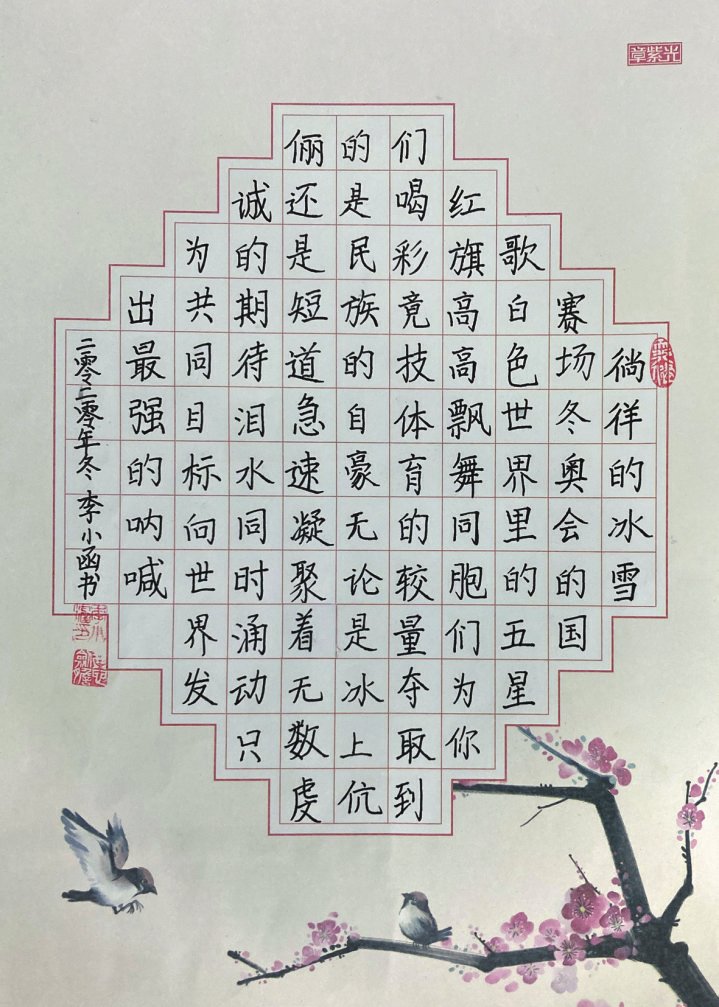 章紫光
徜徉的冰雪
赛场冬奥会的国
歌白色世界里的五星
红旗高高飘舞同胞们为你
们喝彩竟技体育的较量夺取到
的是民族的自豪无论是冰上伉
俪还是短道急速凝聚着无数虔
诚的期待泪水同时涌动只
为共同目标向世界发
出最强的呐喊
二零二零年冬 李小函书